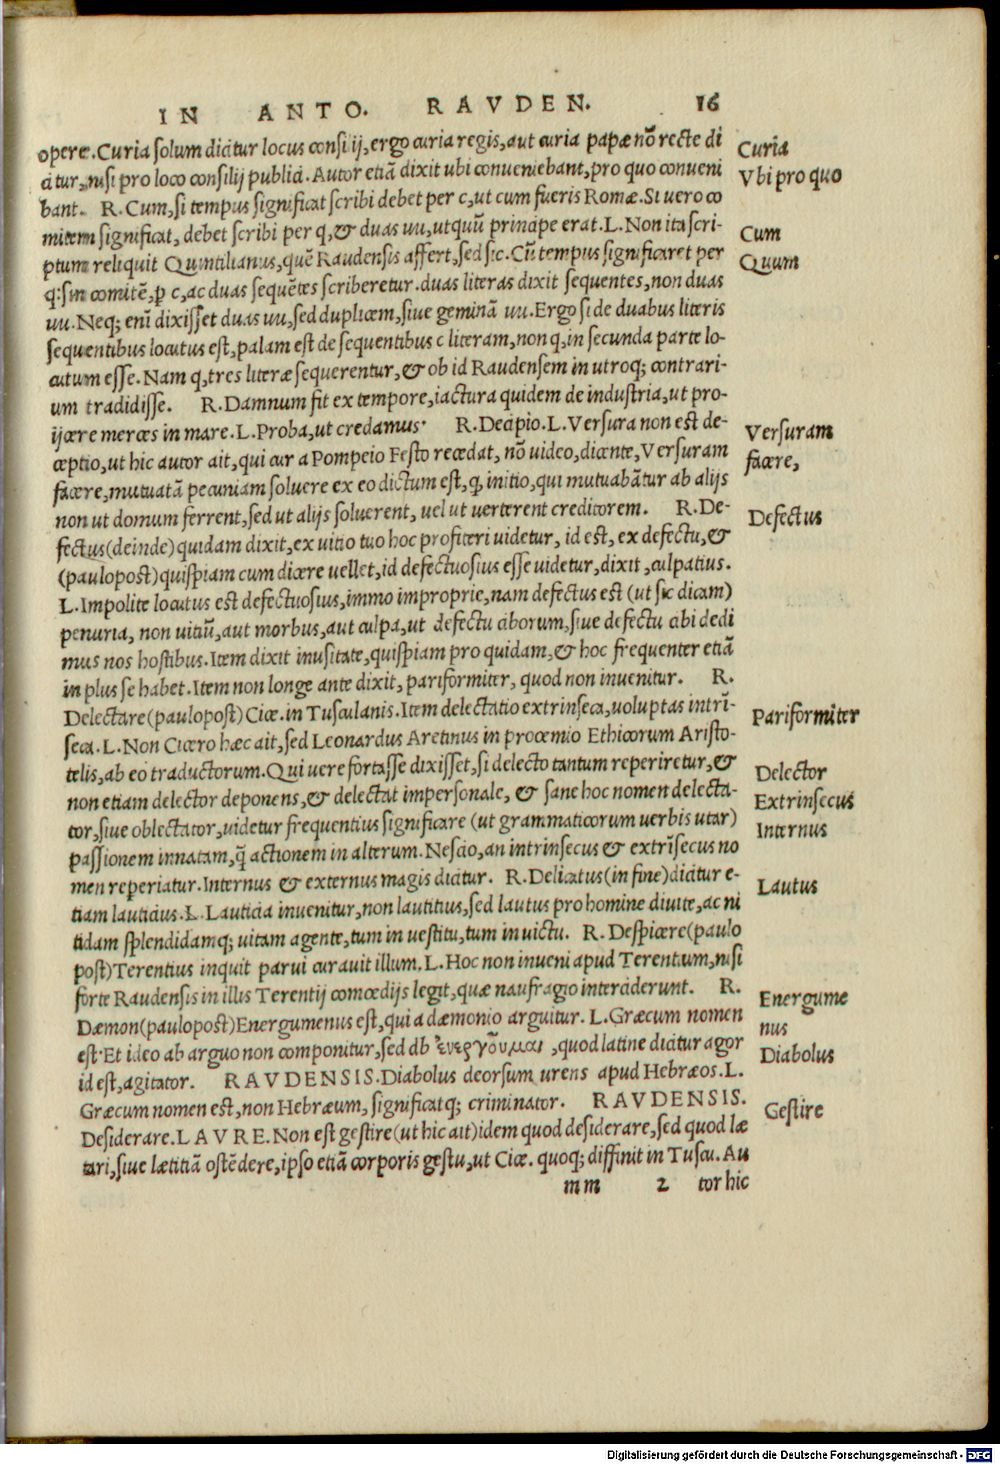 IN ANTO. RAVDEN. 16
opere. Curia solum dicitur locus consilij, ergo curia regis, aut curia papæ nõ recte di
citur, nisi pro loco consilij publici. Autor etiã dixit ubi conueniebant, pro quo conueni
bant. R. Cum, si tempus significat scribi debet per c, ut cum fueris Romæ. Si uero co
mitem significat, debet scribi per q, & duas uu, utquũ principe erat. L. Non ita scri-
ptum reliquit Quintilianus, quẽ Raudensis affert, sed sic. Cũ tempus significaret per
q: sin comitẽ, ꝑ c, ac duas sequẽtes scriberetur. duas literas dixit sequentes, non duas
uu. Neq; enĩ dixisset duas uu, sed duplicem, siue geminã uu. Ergo si de duabus literis
sequentibus locutus est, palam est de sequentibus c literam, non q, in secunda parte lo-
cutum esse. Nam q, tres literæ sequerentur, & ob id Raudensem in utroq; contrari-
um tradidisse. R. Damnum fit ex tempore, iactura quidem de industria, ut pro-
ijcere merces in mare. L. Proba, ut credamus. R. Decipio. L. Versura non est de-
ceptio, ut hic autor ait, qui cur a Pompeio Festo recedat, nõ uideo, dicente, Versuram
facere, mutuatã pecuniam soluere ex eo dictum est, q, initio, qui mutuabãtur ab alijs
non ut domum ferrent, sed ut alijs soluerent, uel ut uerterent creditorem. R. De-
fectus (deinde) quidam dixit, ex uitio tuo hoc profiteri uidetur, id est, ex defectu, &
(paulopost) quispiam cum dicere uellet, id defectuosius esse uidetur, dixit, culpatius.
L. Impolite locutus est defectuosius, immo improprie, nam defectus est (ut sic dicam)
penuria, non uitiũ, aut morbus, aut culpa, ut defectu ciborum, siue defectu cibi dedi
mus nos hostibus. Item dixit inusitate, quispiam pro quidam, & hoc frequenter etiã
in plus se habet. Item non longe ante dixit, pariformiter, quod non inuenitur. R.
Delectare (paulopost) Cice. in Tusculanis. Item delectatio extrinseca, uoluptas intrĩ-
seca. L. Non Cicero hæc ait, sed Leonardus Aretinus in procemio Ethicorum Aristo-
telis, ab eo traductorum. Qui uere fortasse dixisset, si delecto tantum reperiretur, &
non etiam delector deponens, & delectat impersonale, & sane hoc nomen delecta-
tor, siue oblectator, uidetur frequentius significare (ut grammaticorum uerbis utar)
passionem innatam, q̃ actionem in alterum. Nescio, an intrinsecus & extrĩsecus no
men reperiatur. Internus & externus magis dicitur. R. Delicatus (in fine) dicitur e-
tiam lauticius. L. Lauticia inuenitur, non lautitius, sed lautus pro homine diuite, ac ni
tidam splendidamq; uitam agente, tum in uestitu, tum in uictu. R. Despicere (paulo
post) Terentius inquit parui curauit illum. L. Hoc non inueni apud Terentium, nisi
forte Raudensis in illis Terentij comœdijs legit, quæ naufragio interciderunt. R.
Dæmon (paulopost) Energumenus est, qui a dæmonio arguitur. L. Græcum nomen
est. Et ideo ab arguo non componitur, sed db ἐνεργοῦμαι, quod latine dicitur agor
id est, agitator. RAVDENSIS. Diabolus deorsum urens apud Hebræos. L.
Græcum nomen est, non Hebræum, significatq; criminator. RAVDENSIS.
Desiderare. LAVRE. Non est gestire (ut hic ait) idem quod desiderare, sed quod læ
tari, siue lætitiã ostẽdere, ipso etiã corporis gestu, ut Cice. quoq; diffinit in Tuscu. Au
mm 2 tor hic
Curia
Vbi pro quo
Cum
Quum
Versuram
facere,
Defectus
Pariformiter
Delector
Extrinsecus
Internus
Lautus
Energume
nus
Diabolus
Gestire
Digitalisierung gefördert durch die Deutsche Forschungsgemeinschaft - DFG